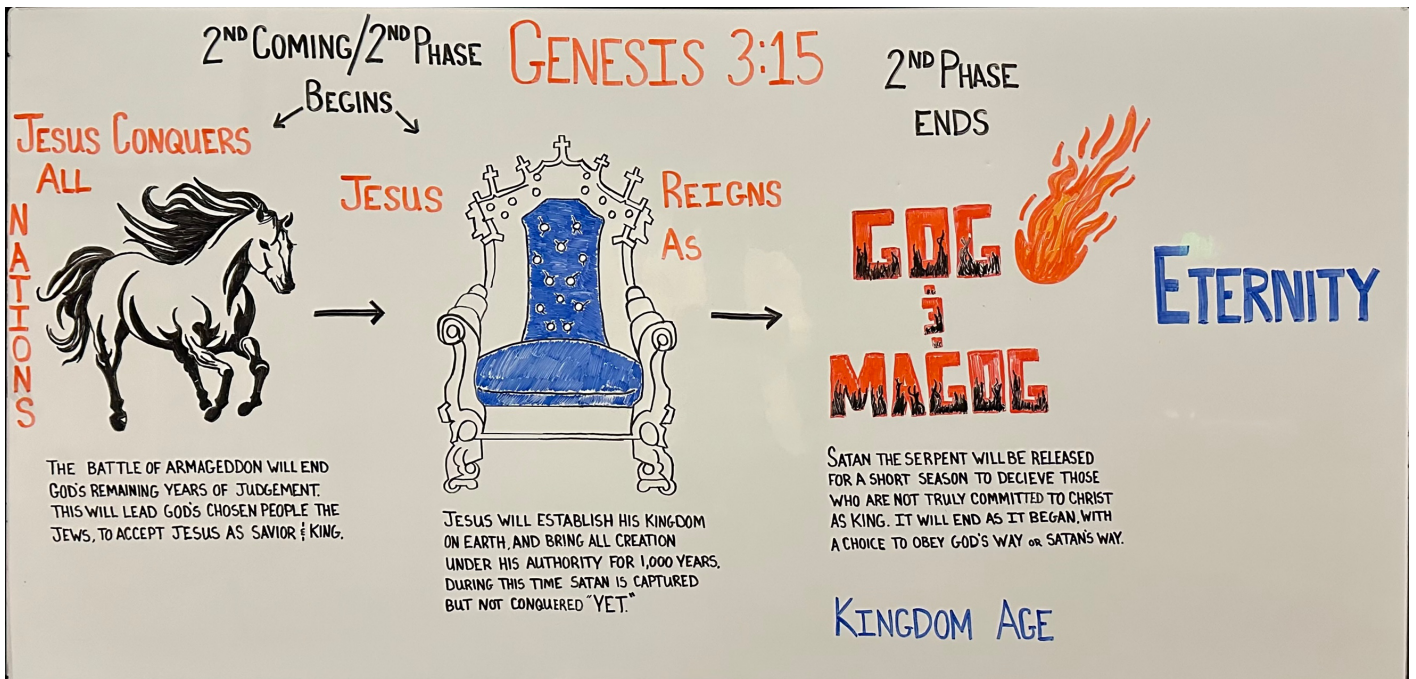 2ND COMING/2ND PHASE
BEGINS
GENESIS 3:15
2ND PHASE
ENDS
JESUS CONQUERS
ALL
NATIONS
JESUS
REIGNS
AS
GOG
&
MAGOG
ETERNITY
THE BATTLE OF ARMAGEDDON WILL END
GOD'S REMAINING YEARS OF JUDGEMENT.
THIS WILL LEAD GOD'S CHOSEN PEOPLE THE
JEWS, TO ACCEPT JESUS AS SAVIOR & KING.
JESUS WILL ESTABLISH HIS KINGDOM
ON EARTH, AND BRING ALL CREATION
UNDER HIS AUTHORITY FOR 1,000 YEARS.
DURING THIS TIME SATAN IS CAPTURED
BUT NOT CONQUERED "YET."
SATAN THE SERPENT WILL BE RELEASED
FOR A SHORT SEASON TO DECIEVE THOSE
WHO ARE NOT TRULY COMMITTED TO CHRIST
AS KING. IT WILL END AS IT BEGAN, WITH
A CHOICE TO OBEY GOD'S WAY OR SATAN'S WAY.
KINGDOM AGE